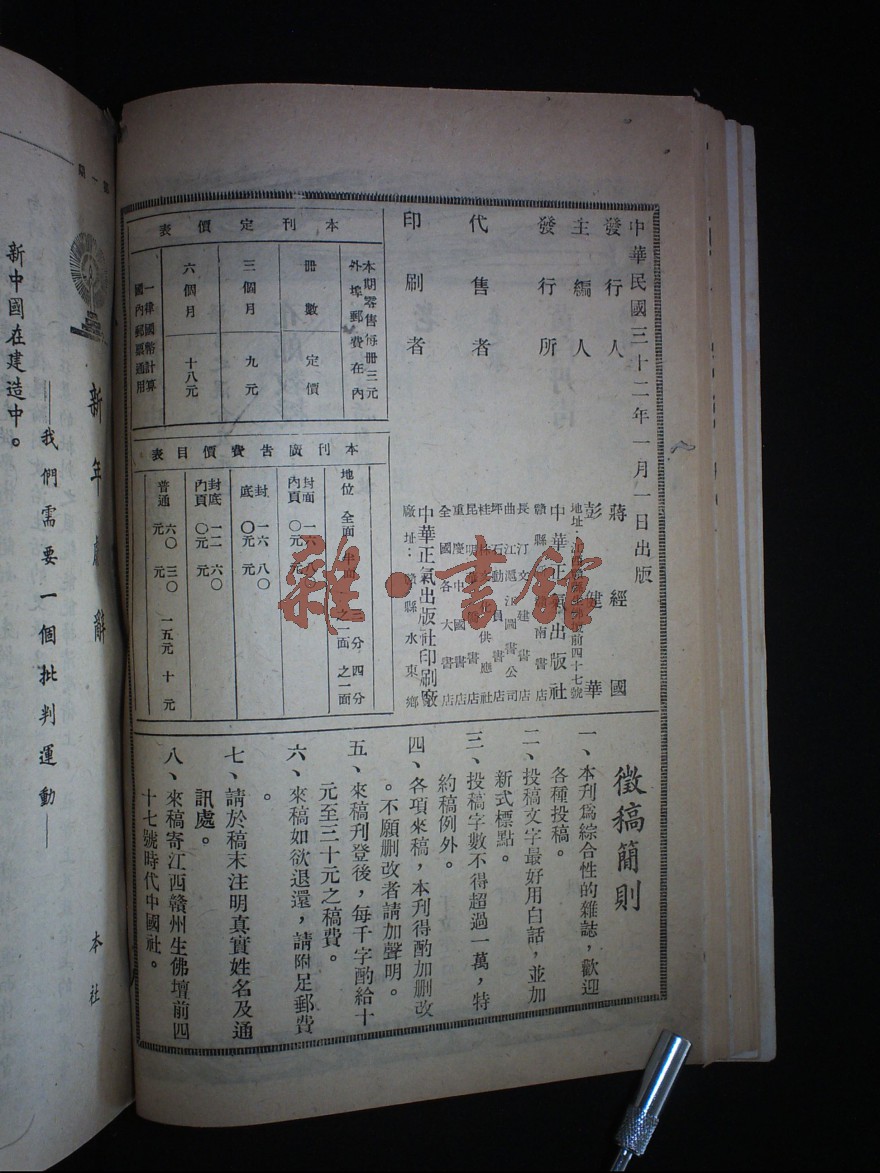 中華民國三十二年一月一日出版
發行人　蔣經國
主編人　彭健華
地址：江西贛縣生佛壇前四十七號
發行所　中華正氣出版社
代售者
贛縣 南書店
長汀文建書店
曲江 江圖書公司
坪石動員書店
桂林文化供應社
昆明 書店
重慶中國書店
全國各大書店
印刷者　中華正氣出版社印刷廠
廠址：贛縣水東鄉
本刊定價表
本期零售每冊三元
外埠郵費在內
冊數　定價
三個月　九元
六個月　十八元
一律國幣計算
國內郵票通用
本刊廣告費價目表
地位　全面　半面　三分之一面　四分之一面
封面內頁　一六〇元　八〇元
封底　一六〇元　八〇元
封底內頁　一二〇元　六〇元
普通　六〇元　三〇元　一五元　十元
徵稿簡則
一、本刊為綜合性的雜誌，歡迎
各種投稿。
二、投稿文字最好用白話，並加
新式標點。
三、投稿字數不得超過一萬，特
約稿例外。
四、各項來稿，本刊得酌加刪改
。不願刪改者請加聲明。
五、來稿刊登後，每千字酌給十
元至三十元之稿費。
六、來稿如欲退還，請附足郵費
。
七、請於稿末注明真實姓名及通
訊處。
八、來稿寄江西贛州生佛壇前四
十七號時代中國社。
新年獻辭
——我們需要一個批判運動——
本社
新中國在建造中。
雜·書館